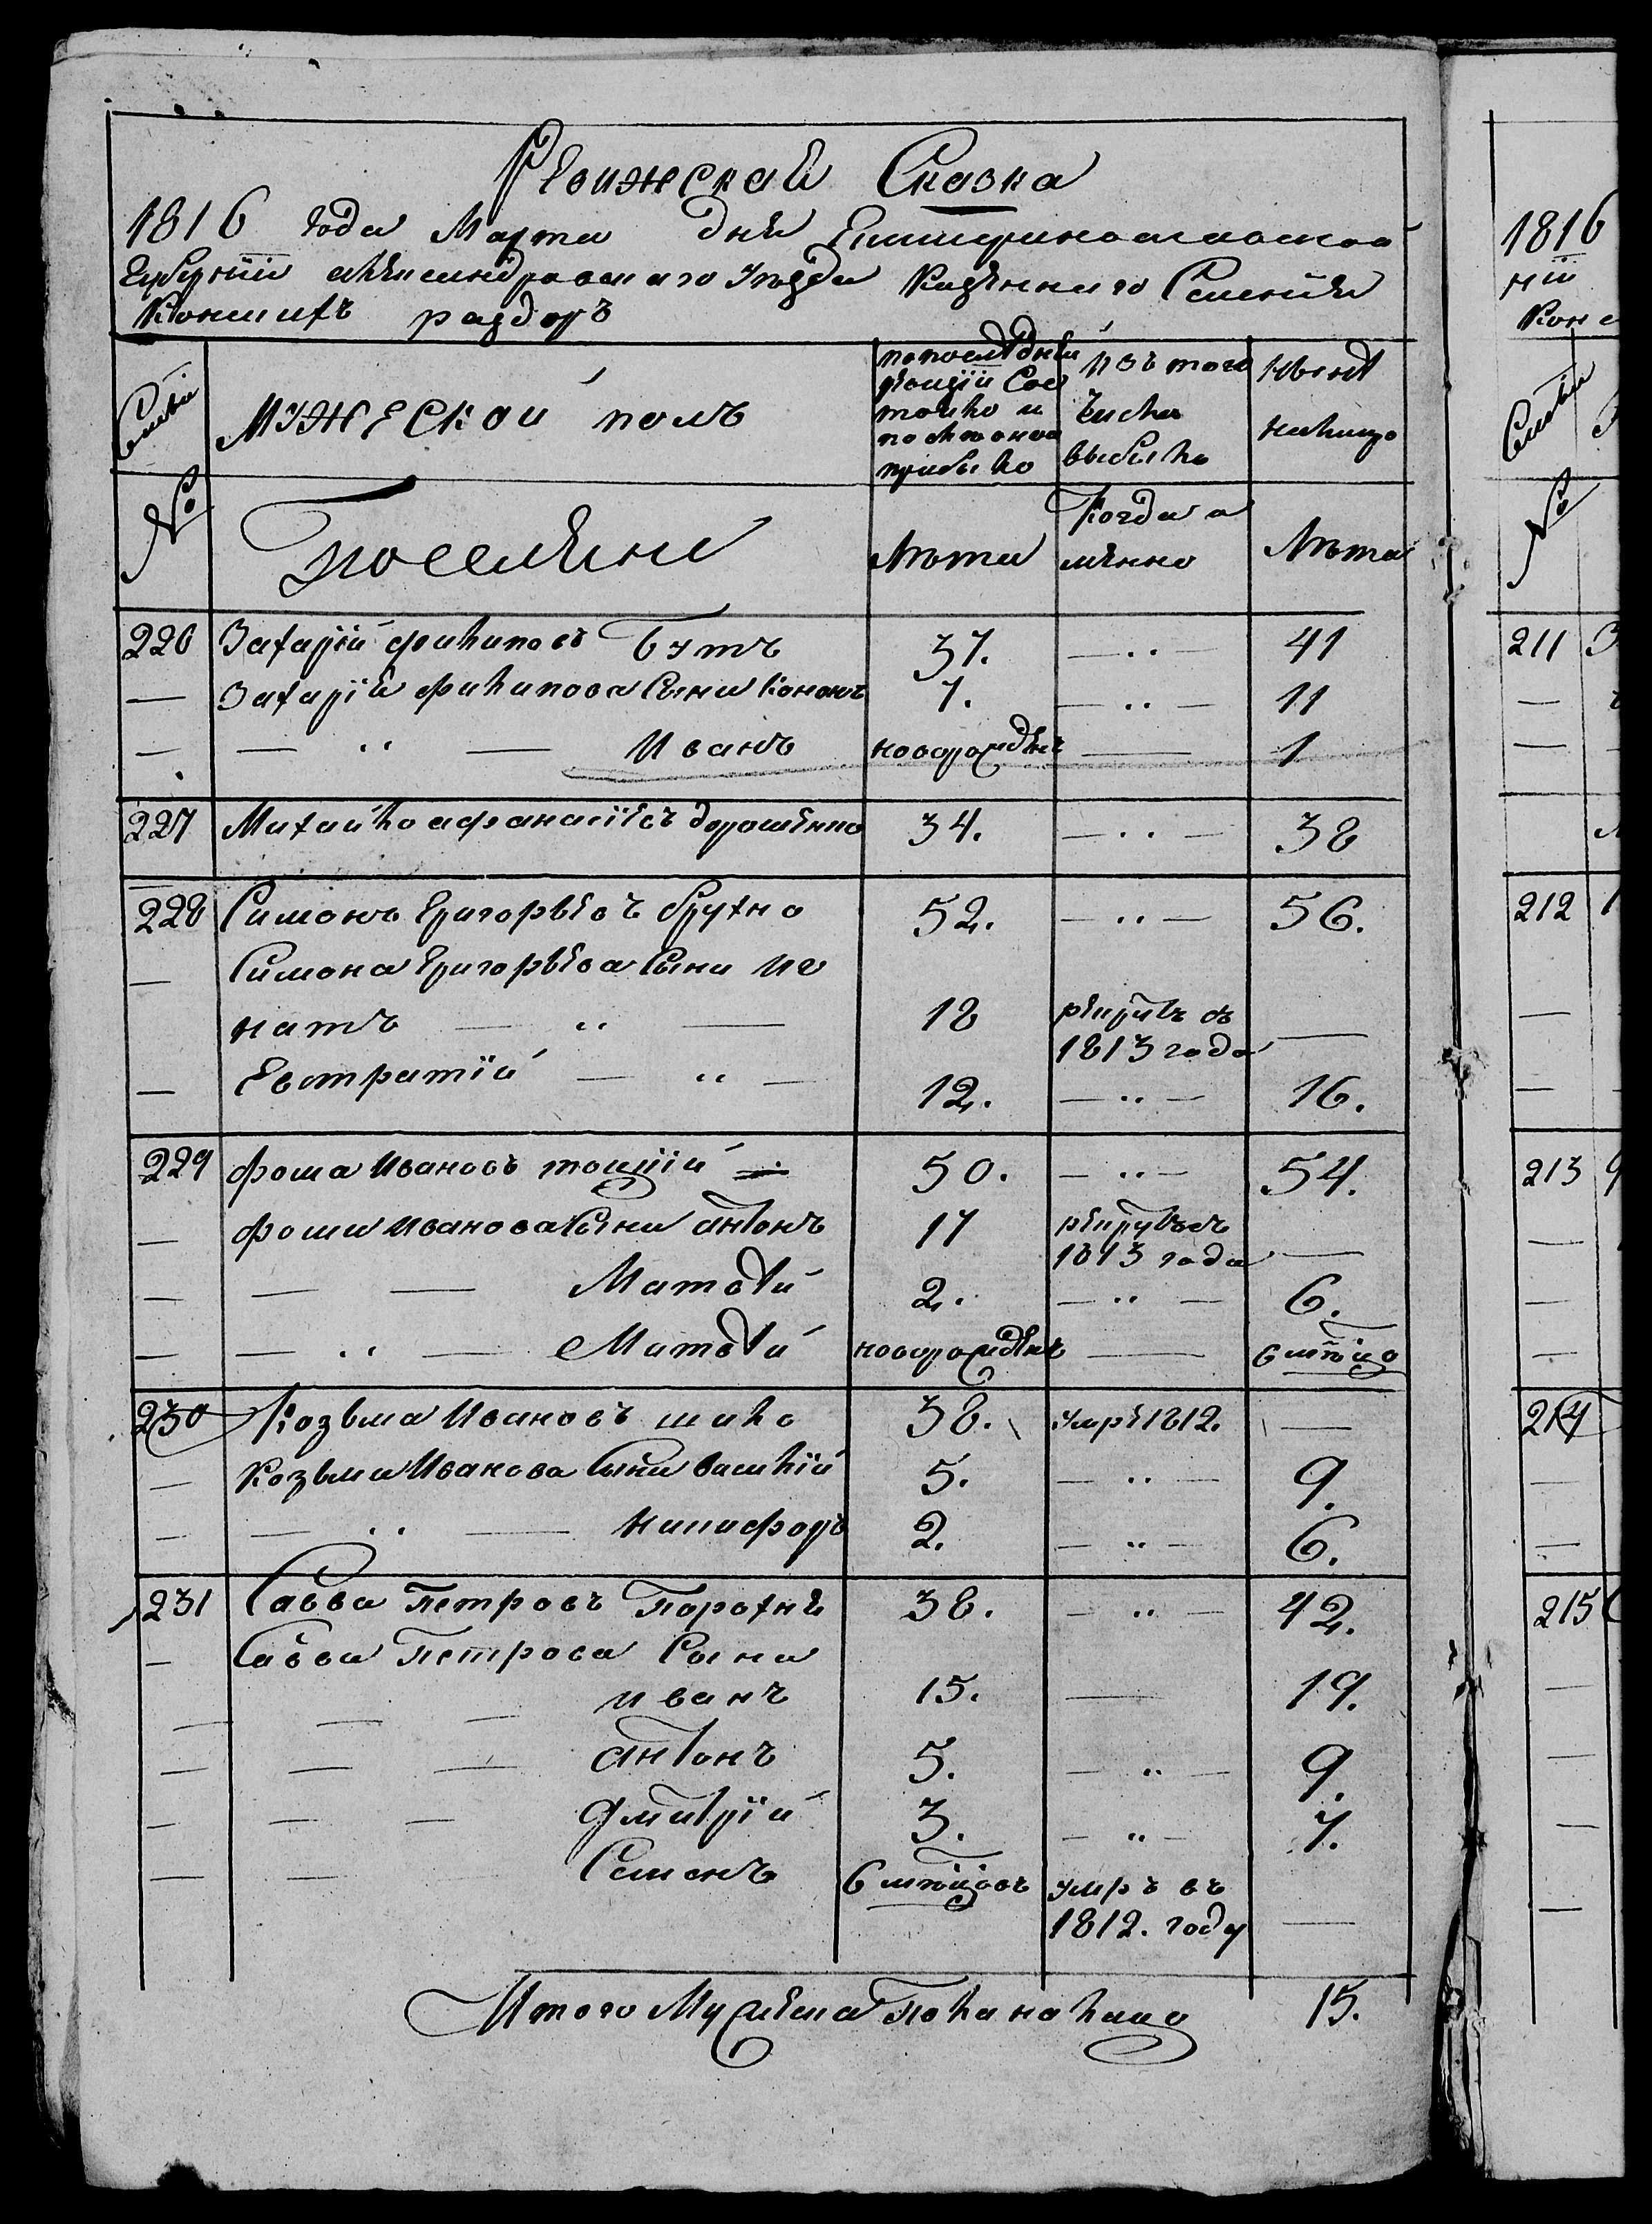 Ревижская Сказка
1816 года Марта дня Екатеринославской
Губернии Александровского уезда Казенного Селения
Конских раздоръ
Семьи
мужеской полъ
по последней ревизии состояло и после оной прибыло
Изъ того числа выбыло
ныне налицо
№
поселяне
Лета
Когда именно
Лета
226 Захарий филиповъ Бутъ 37. — ·· — 41
— Захария филипова Сыни Кононъ 7. — ·· — 11
— — ·· — Иванъ новорожденъ — 1
227 Михайло афанасиевъ дорошенко 34. — ·· — 38
228 Симонъ Григорьевъ брухно 52. — ·· — 56.
— Симона Григорьева Сыни Иг
натъ — ·· — 18 рекрутъ съ 1813 года —
— Евстратий — ·· — 12. — ·· — 16.
229 фома Ивановъ тоцкий 50. — ·· — 54.
— фоми Иванова Сыни антонъ 17 рекрутъ съ 1813 года —
— — — Матвей 2. — ·· — 6.
— — ·· — Матвей новорожденъ — 6 месяцо
230 Козьма Ивановъ шило 38. умре 1812. —
— Козьми Иванова Сыни василий 5. — ·· — 9.
— — ·· — никифоръ 2. — ·· — 6.
231 Савва Петровъ Порохня 38. — ·· — 42.
— Савви Петрова Сыни
иванъ 15. — 19.
— — — антонъ 5. — ·· — 9.
— — — Дмитрий 3. — ·· — 7.
— — — Семенъ 6 месяцовъ умръ въ 1812. году —
Итого Мужеска Пола налицо 15.
1816
нии
Кон
Семьи
№
211 З
212
213
214
215